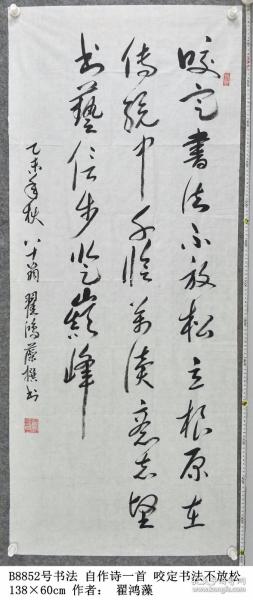 咬定書法不放松立根原在
传统中千临万读意志坚
书藝信步巅峰
乙未年秋 八十翁 翟鸿藻撰书
B8852号书法 自作诗一首 咬定书法不放松
138×60cm 作者： 翟鸿藻